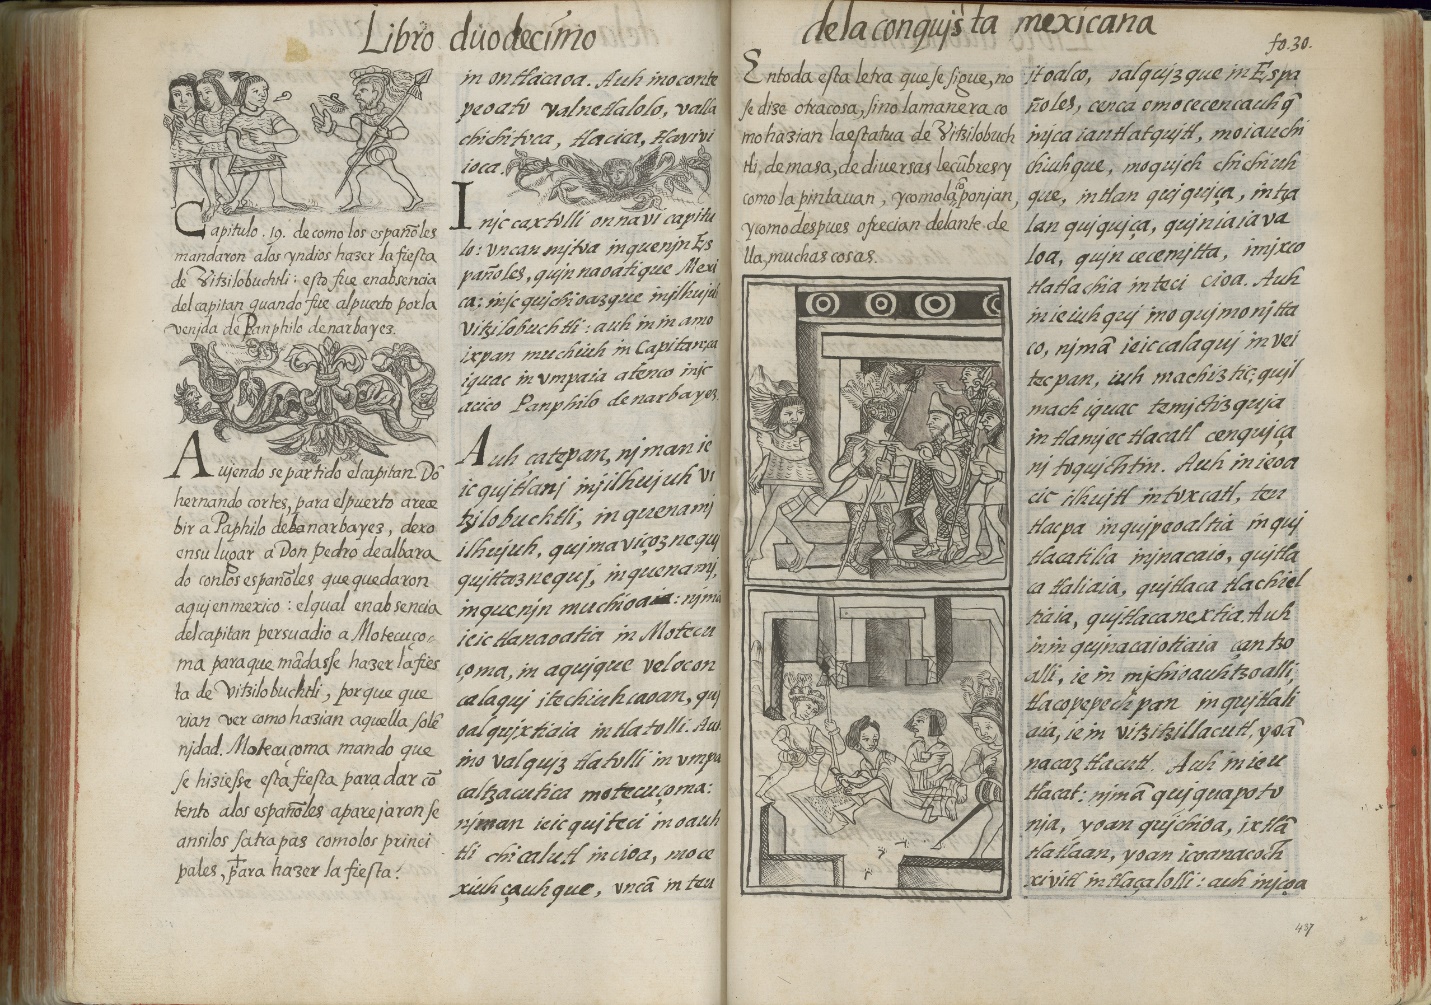 Libro duodeçimo
Capitulo .19. de como los españoles
mandaron alos yndios hazer la fiesta
de Vitzilobuchtli: esto fue en absencia
del capitan quando fue al puerto por la
venjda de Panphilo de narbayez.
Aujendo se partido el capitan. Dō
hernando cortes, para el puerto a reçe
bir a Pāphilo de narbayez, dexo
en su lugar a Don pedro de albara
do con los españoles que quedaron
aquj en mexico: el qual en absencia
del capitan persuadio a Motecuço
ma para que mādasse hazer la fies
ta de Vitzilobuchtli, porque que
rian ver como hazian aquella solē
njdad. Motecuçoma mando que
se hiziesse esta fiesta para dar cō
tento alos españoles aparejaron se
ansi los satrapas como los princi
pales, para hazer la fiesta:
in ontlacaoa. Auh in oconte
peoato valnetlalolo, valla
chichitoca, tlacia, tlavivi
ioca.
Injc caxtolli onnavi capitu
lo: vncan mjtoa in quenjn Es
pañoles, qujnnaoatique Mexi
ca: injc quichioazque injlhujuh
Vitzilobuchtli: auh in in amo
ixpan muchiuh in Capitan, ca
iquac in vmpa ia atenco injc
acico Panphilo de narbayez.
Auh çatepan, nj man ie
ic qujtlanj injilhujuh vi
tzilobuchtli, in quenamj
ilhujuh, qujmaviçoznequj
qujttaznequj, in quenamj,
in quenjn muchioa: njmā
ie ic tlanaoatia in Motecu
çoma, in aqujque vel ocon
calaquj itechiuhcaoan, quj
oalqujxtiaia in tlatolli. Auh
in o valquiz tlatolli in vmpa
caltzacutica motecuçoma:
njman ie ic qujteci in oauh
tli chicalutl in cioa, moce
xiuhçauhque, vncā in teu
de la conqujsta mexicana
fo.30.
En toda esta letra que se sigue, no
se dize otra cosa, sino la manera co
mo hazian la estatua de Vitzilobuch
tli, de masa, de diuersas lecūbres y
como la pintauan, y como la ponjan,
y como despues ofrecian delante de
lla, muchas cosas.
itoalco, oalqujzque in Espa
ñoles, cenca omocecencauhq̄
injca iautlatqujtl, moiauchi
chiuhque, moqujchchichiuh
que, intlan qujquiça, intza
lan qujquiça, quiniaiava
loa, qujncecemjtta, imjxco
tlatlachia in teci cioa. Auh
in ie iuhquj in oqujmonjtta
co, njmā ie ic calaquj in vei
tecpan, iuh machiztic, quil
mach iquac temjctizquja
in tla mjec tlacatl cenquiça
nj toqujchtin. Auh in ie oa
cic ilhujtl in tvxcatl, teu
tlacpa in qujpeoaltia in quj
tlacatilia injnacaio, qujtla
catlaliaia, qujtlacatlachiel
tiaia, qujtlacanextia. Auh
in in qujnacaiotiaia çan tzo
alli, ie in mjchioauhtzoalli,
tlacopepechpan in qujtlali
aia, ie in vitzitzillacutl, yoā
nacaztlacutl. Auh in ieu
tlacat: njmā qujquapoto
nja, yoan qujchioa, ixtlā
tlatlaan, yoan icoanacoch
xivitl in tlaçalolli: auh injçoa
437